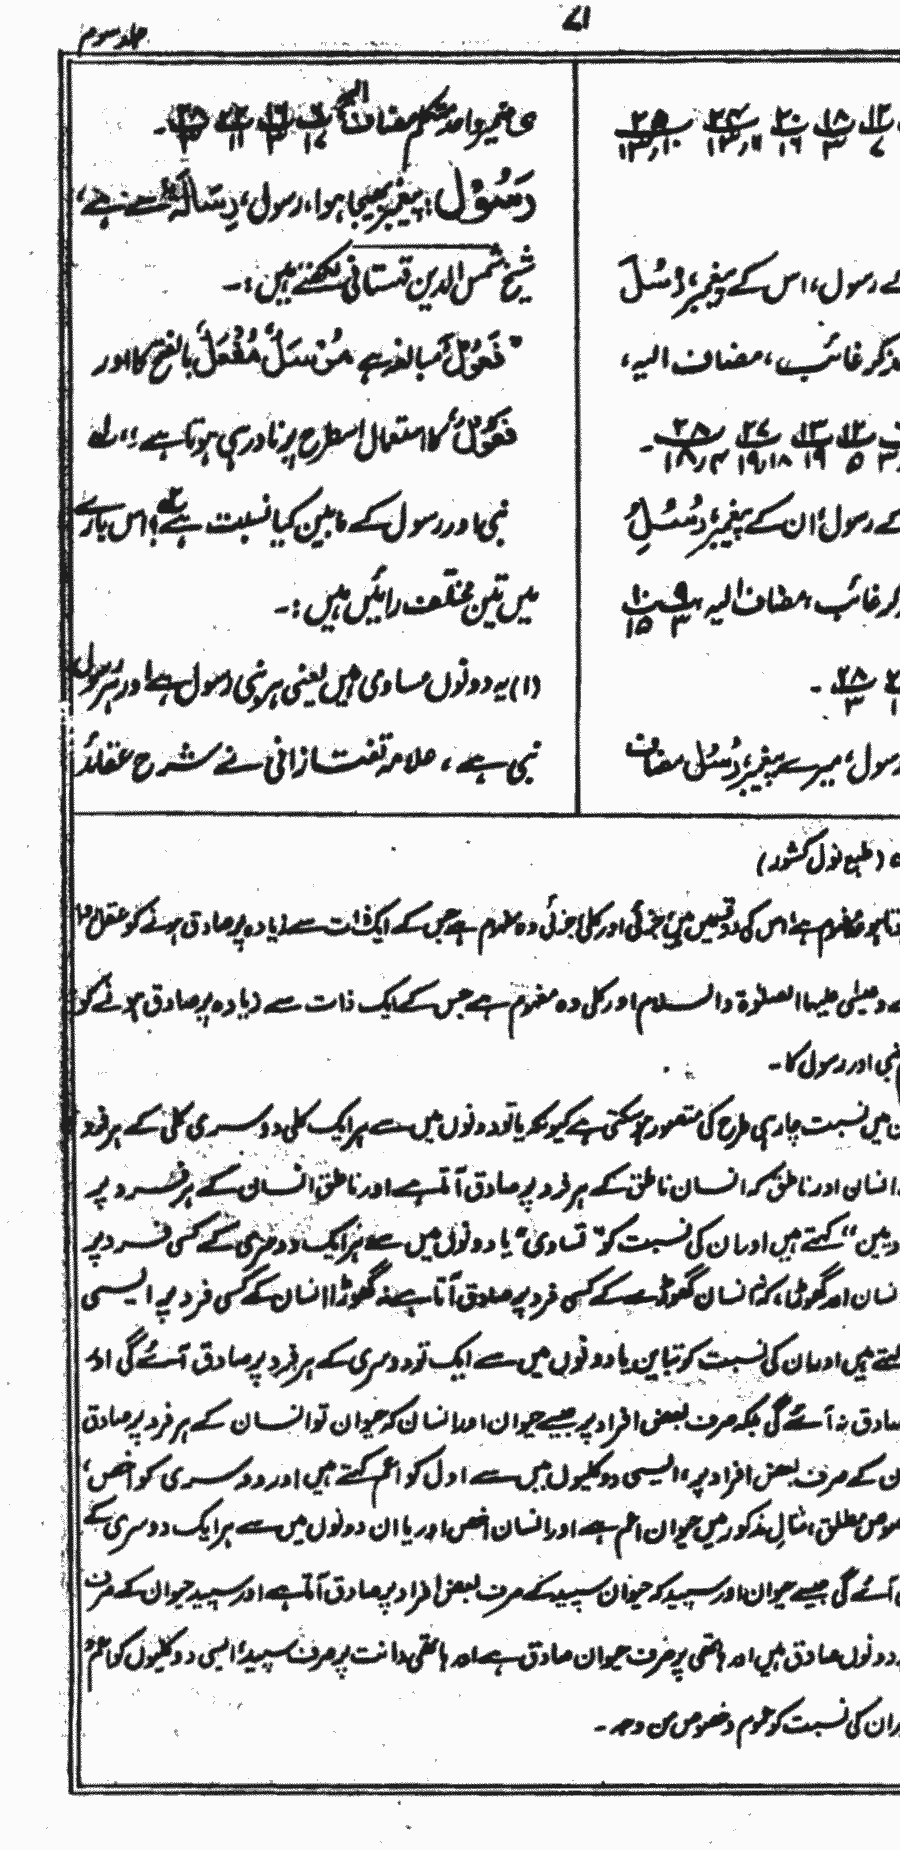 ۷۱
جلد سوم
۱۲ ۱۸ ۲۰ ۲۴ ۲۵
۷ ۳ ۱۶
رسول، اس کے پیغمبر، رُسُل
مذکر غائب، مضاف الیہ،
۱۲ ۱۳ ۲۷ ۲۸
۵ ۱۹ ۱۸ر۱۹ ۴ر۱۸
کے رسول، ان کے پیغمبر، رُسُلِ
غائب، مضاف الیہ ۹ ۱۰
۳ ۱۵
۲۸
۳
رسول، میرے پیغمبر، رُسُل مضاف
ی ضمیر واحد متکلم مضاف الیہ
رَسُوْل: پیغمبر، بھیجا ہوا، رسول، رِسَالَۃٌ سے ہے،
شیخ شمس الدین قہستانی لکھتے ہیں:۔
"فَعُوْلٌ مبالغہ ہے مُرْسَلٌ مُفْعَلٌ بالفتح کا اور
فَعُوْلٌ کا استعمال اسطرح پر نادر ہی ہوتا ہے"؛
نبی اور رسول کے مابین کیا نسبت ہے؟ اس بارے
میں تین مختلف رائیں ہیں:۔
(۱) یہ دونوں مساوی ہیں یعنی ہر نبی رسول ہے اور ہر رسول
نبی ہے، علامہ تفتازانی نے شرح عقائد
(طبع نول کشور)
مفہوم ہے اس کی دو قسمیں ہیں جزئی اور کلی، جزئی وہ مفہوم ہے جس کے ایک ذات سے زیادہ پر صادق ہونے کو عقل
وعیسٰی علیہما الصلوٰۃ والسلام اور کلی وہ مفہوم ہے جس کے ایک ذات سے زیادہ پر صادق ہونے کو
نبی اور رسول کا۔
میں نسبت چار ہی طرح کی متصور ہو سکتی ہے کیونکہ یا تو دونوں میں سے ہر ایک کلی دوسری کلی کے ہر فرد
انسان اور ناطق کہ انسان ناطق کے ہر فرد پر صادق آتا ہے اور ناطق انسان کے ہر فرد پر
کہتے ہیں اور ان کی نسبت کو "تساوی" یا دونوں میں سے ہر ایک دوسری کے کسی فرد پر
انسان اور گھوڑا، کہ نہ انسان گھوڑے کے کسی فرد پر صادق آتا ہے نہ گھوڑا انسان کے کسی فرد پر ایسی
کہتے ہیں اور ان کی نسبت کو تباین یا دونوں میں سے ایک تو دوسری کے ہر فرد پر صادق آئے گی اور
صادق نہ آئے گی بلکہ صرف بعض افراد پر جیسے حیوان اور انسان کہ حیوان تو انسان کے ہر فرد پر صادق
کے صرف بعض افراد پر، ایسی دو کلیوں میں سے اول کو اعم کہتے ہیں اور دوسری کو اخص،
مطلق، مثال مذکور میں حیوان اعم ہے اور انسان اخص اور یا ان دونوں میں سے ہر ایک دوسری کے
آئے گی جیسے حیوان اور سپید کہ حیوان سپید کے صرف بعض افراد پر صادق آتا ہے اور سپید حیوان کے صرف
دونوں صادق ہیں اور ہاتھی پر صرف حیوان صادق ہے اور ہاتھی دانت پر صرف سپید، ایسی دو کلیوں کو اعم
ان کی نسبت کو عموم وخصوص من وجہ۔